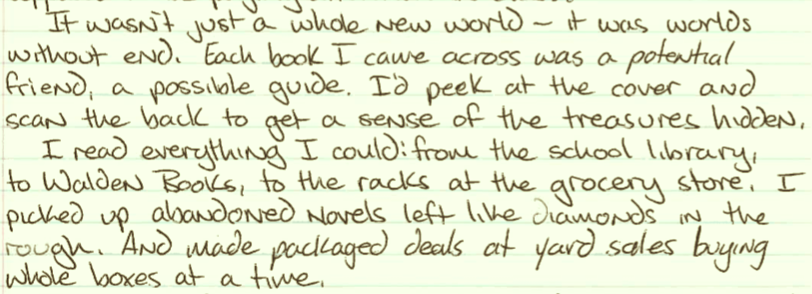 It wasn't just a whole new world – it was worlds
without end. Each book I came across was a potential
friend, a possible guide. I'd peek at the cover and
scan the back to get a sense of the treasures hidden.
I read everything I could: from the school library,
to Walden Books, to the racks at the grocery store. I
picked up abandoned novels left like diamonds in the
rough. And made packaged deals at yard sales buying
whole boxes at a time.